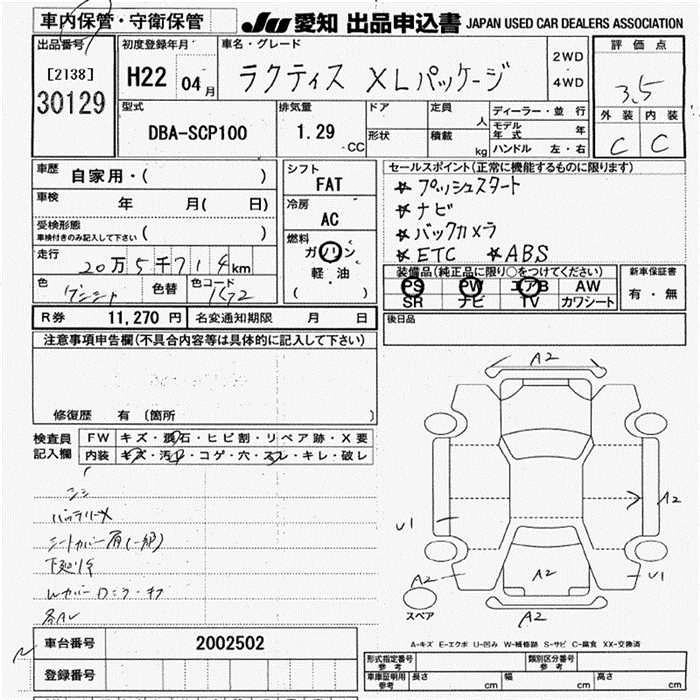 車内保管・守衛保管
JU 愛知 出品申込書 JAPAN USED CAR DEALERS ASSOCIATION
出品番号
[2138]
30129
初度登録年月
H22 04月
車名・グレード
ラクティス XLパッケージ
2WD
4WD
評価点
3.5
外装 内装
C C
型式
DBA-SCP100
排気量
1.29 CC
ドア
形状
定員 人
積載 kg
ディーラー・並行
モデル年式 年
ハンドル 左・右
車歴
自家用・( )
車検 年 月( 日)
受検形態
車検付きのみ記入して下さい ( )
走行
20万5千714km
色
色替
色コード
1C72
シフト
FAT
冷房
AC
燃料
ガソリン
軽・油
( )
セールスポイント(正常に機能するものに限ります)
☆ プッシュスタート
☆ ナビ
☆ バックカメラ
☆ ETC ☆ ABS
装備品(純正品に限り○をつけてください)
PS PW エアB AW
SR ナビ TV カワシート
新車保証書
有・無
R券 11,270 円 名変通知期限 月 日
後日品
注意事項申告欄(不具合内容等は具体的に記入して下さい)
修復歴 有 〔箇所 〕
検査員記入欄
FW キズ・飛石・ヒビ割・リペア跡・X要
内装 キズ・汚れ・コゲ・穴・スレ・キレ・破レ
バッテリーX
シートカバー有(一部)
下廻りサ
各AU
A2
A2
U1
A2
A2
U1
A2
スペア
A-キズ E-エクボ U-凹み W-補修跡 S-サビ C-腐食 XX-交換済
車台番号 2002502
登録番号
形式指定番号参考
類別区分番号参考
車庫証明用参考 長さ cm 幅 cm 高さ cm